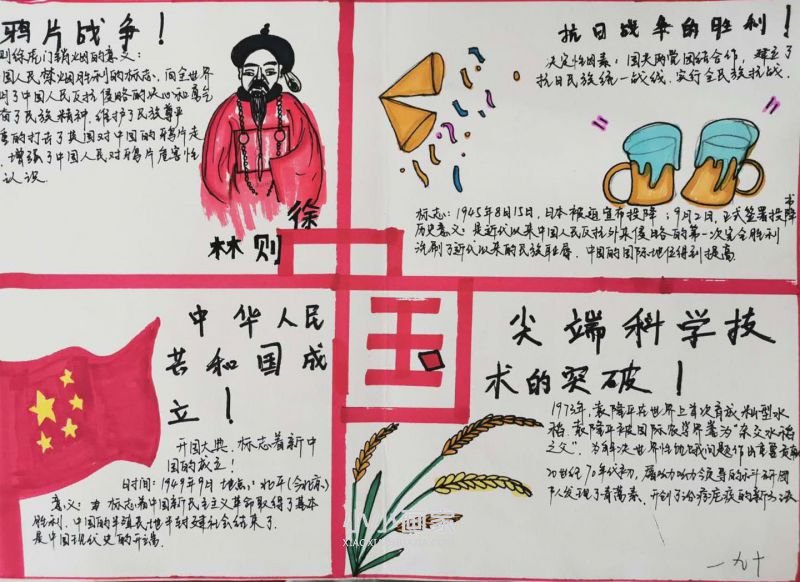 鸦片战争！
则徐虎门销烟的意义：
国人民禁烟胜利的标志，向全世界
明了中国人民反抗侵略的决心和勇气
奋了民族精神，维护了民族尊严
重的打击了英国对中国的鸦片走
增强了中国人民对鸦片危害性
认识
徐
林则
抗日战争的胜利！
决定性因素：国共两党团结合作，建立了
抗日民族统一战线，实行全民族抗战。
标志：1945年8月15日，日本被迫宣布投降；9月2日，正式签署投降
书
历史意义：是近代以来中国人民反抗外来侵略的第一次完全胜利
洗刷了近代以来的民族耻辱，中国的国际地位得到提高
中国
中华人民
共和国成
立！
开国大典，标志着新中
国的成立！
时间：1949年9月 地点：北平（今北京）
意义：标志着中国新民主主义革命取得了基本
胜利，中国的半殖民地半封建社会结束了
是中国现代史的开端。
尖端科学技
术的突破！
1973年，袁隆平在世界上首次育成籼型水
稻，袁隆平被国际农学界誉为“杂交水稻
之父”，为解决世界性饥饿问题作出重要贡献
20世纪70年代初，屠呦呦领导的科研团
队发现了青蒿素，开创了治疗疟疾的新方法
一九十